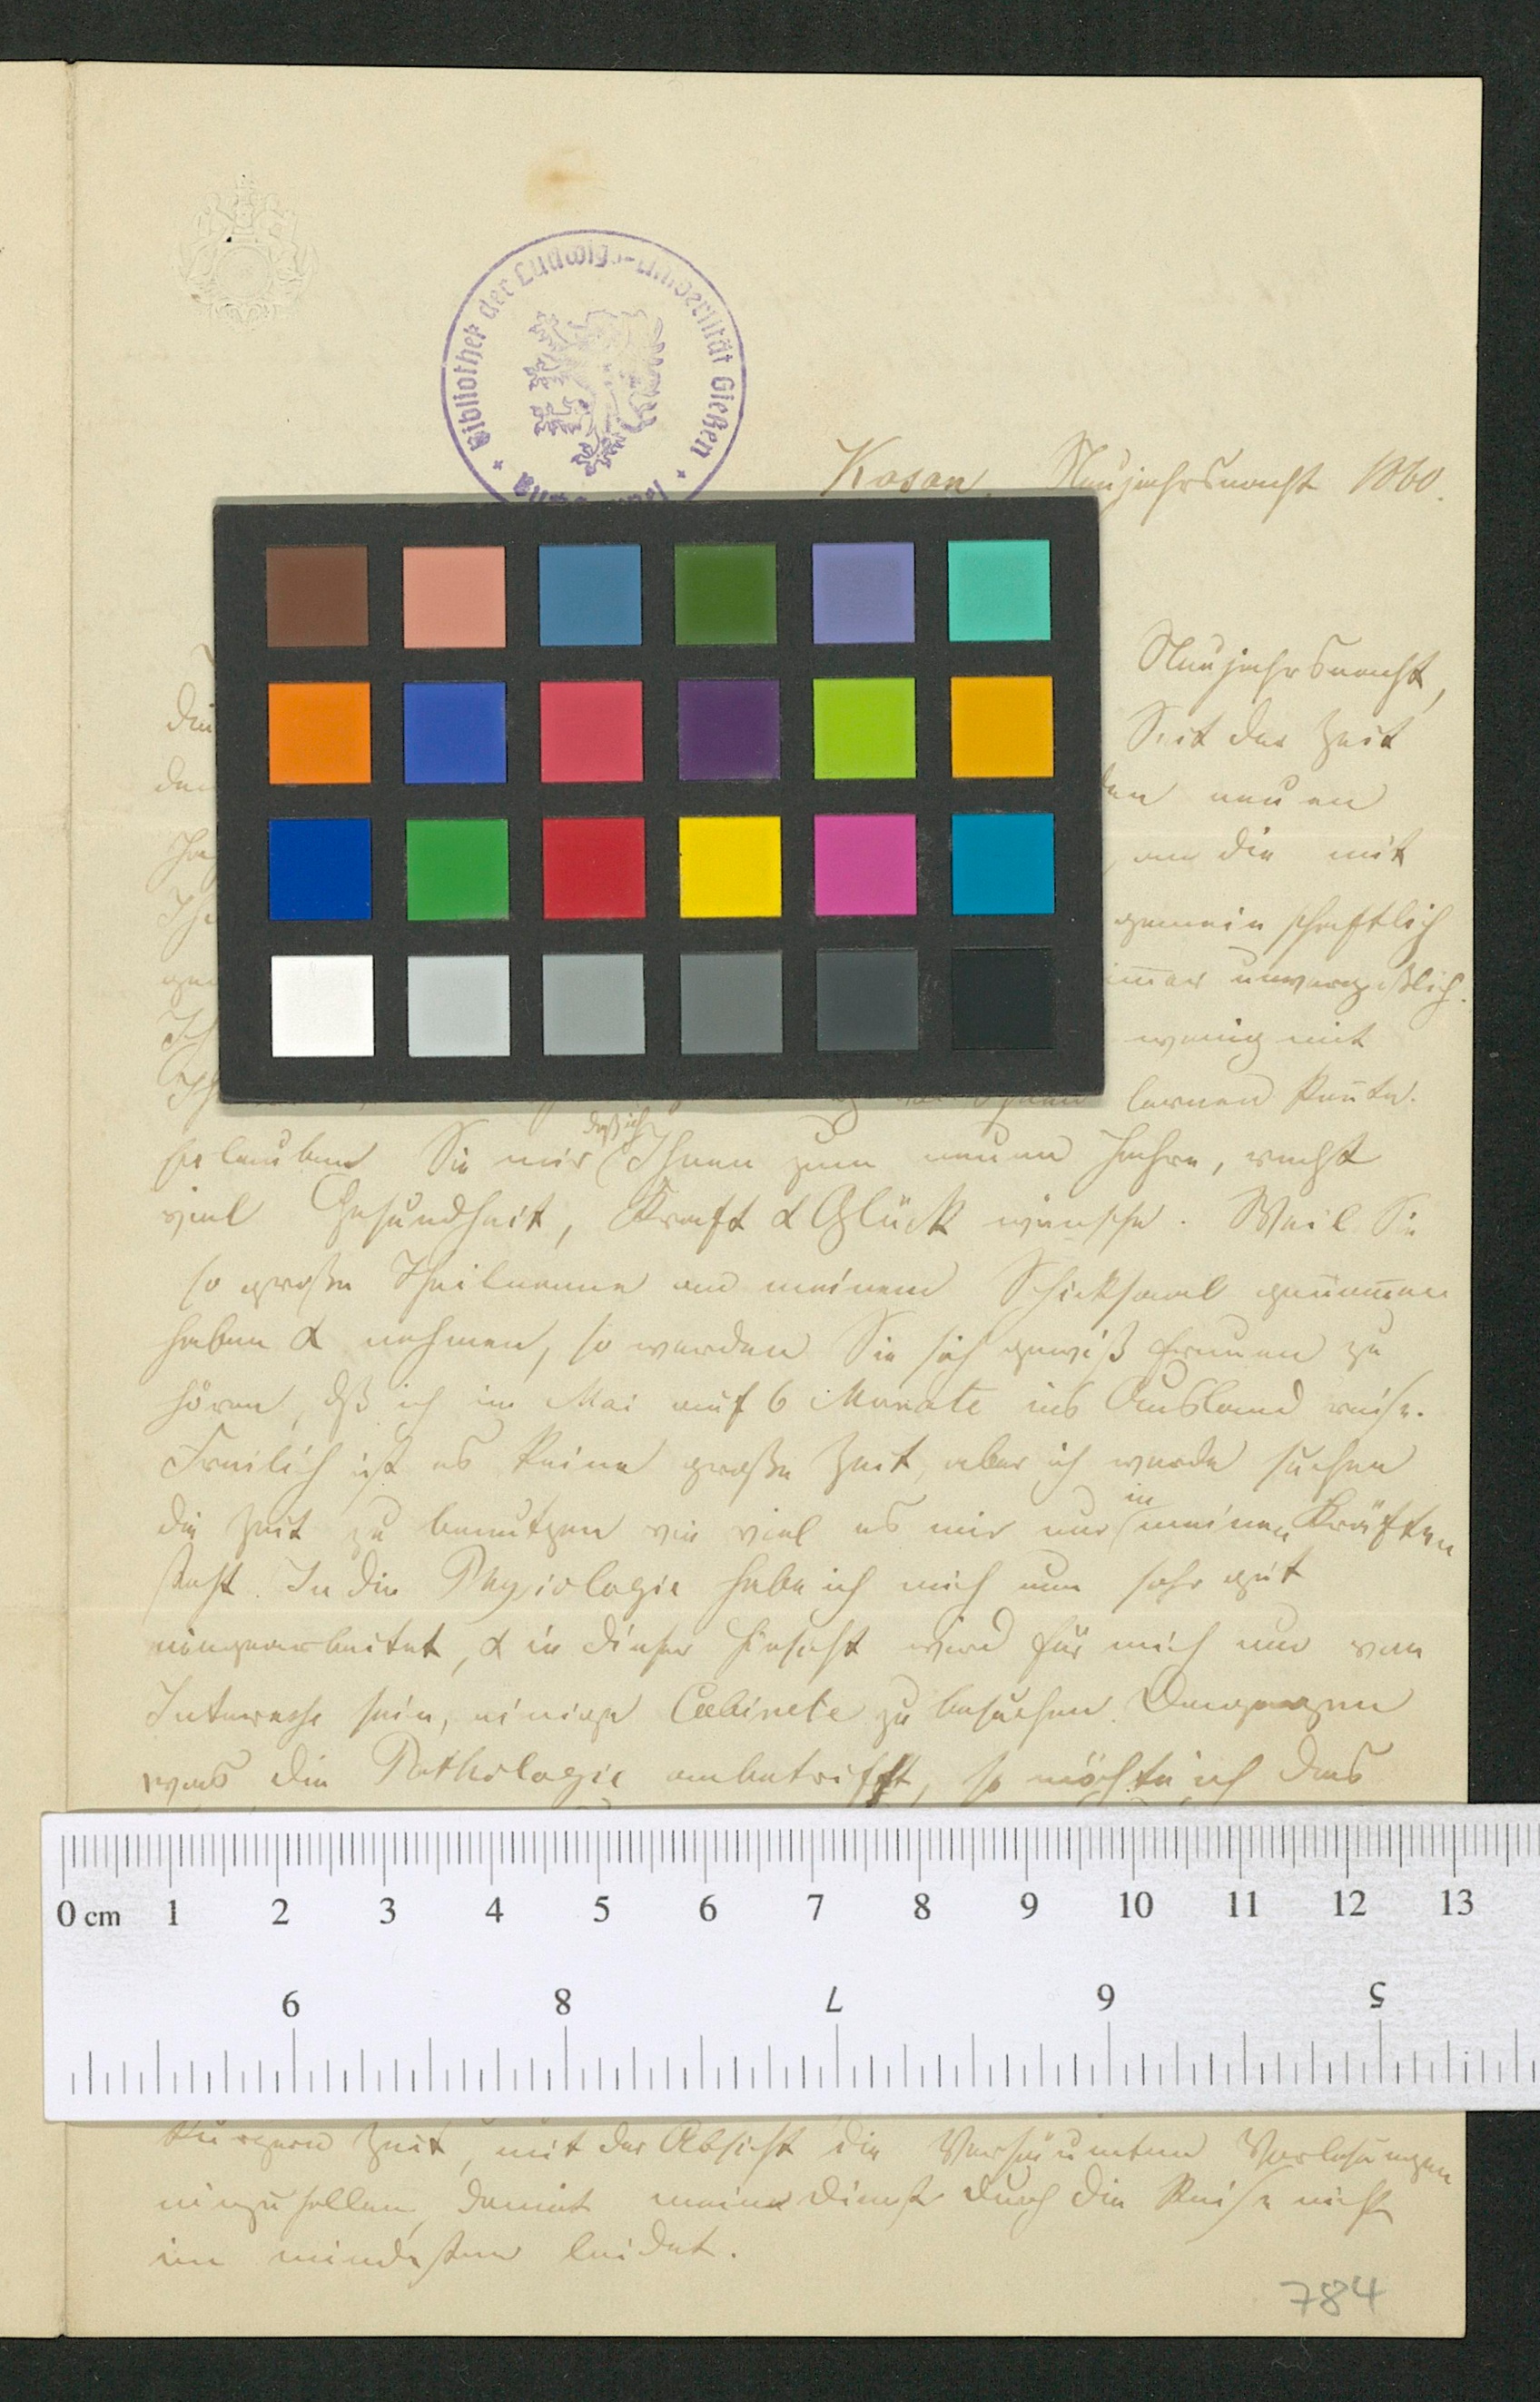 Bibliothek der Ludwigs-Universität Gießen
Kasan. Neujahrsnacht 1860.
Neujahrsnacht,
die
Seit der Zeit
neuen
um die mit
gemeinschaftlich
immer unvergeßlich.
Ich wenig mit
Ihnen lernen kante.
Erlauben Sie mir daß ich Ihnen zum neuen Jahre, recht
viel Gesundheit, Kraft & Glück wünsche. Weil Sie
so große Theilname an meinem Schicksaal genommen
haben & nehmen, so werden Sie sich gewiß freuen zu
hören, dß ich im Mai auf 6 Monate ins Ausland reise.
Freilich ist es keine große Zeit, aber ich werde suchen
die Zeit zu benutzen wie viel es mir nur in meinen Kräften
steht. In die Physiologie habe ich mich nun sehr gut
eingearbeitet, & in dieser Hinsicht wird für mich nur von
Interesse sein, einige Cabinete zu besuchen. Dengegen
was die Pathologie anbetrifft, so möchte ich das
0 cm 1 2 3 4 5 6 7 8 9 10 11 12 13
9 8 7 6 5
kurzern Zeit, mit der Absicht die Versäumten Vorlesungen
einzuhollen, damit meine Dienst durch die Reise nicht
im mindesten leidet.
784